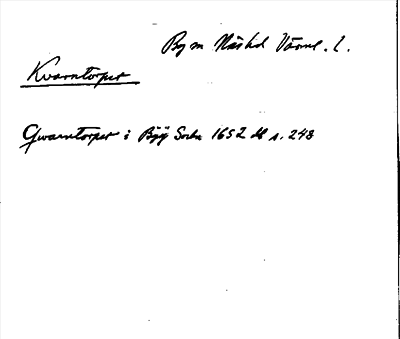 By m Näshd Värml. l.
Kvarntorpet
Qwarntorpet i Byÿ Sochn 1652 db s. 248